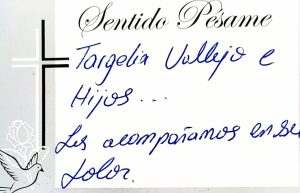 Sentido Pésame
Targelia Vallejo e
Hijos...
Les acompañamos en su
dolor.